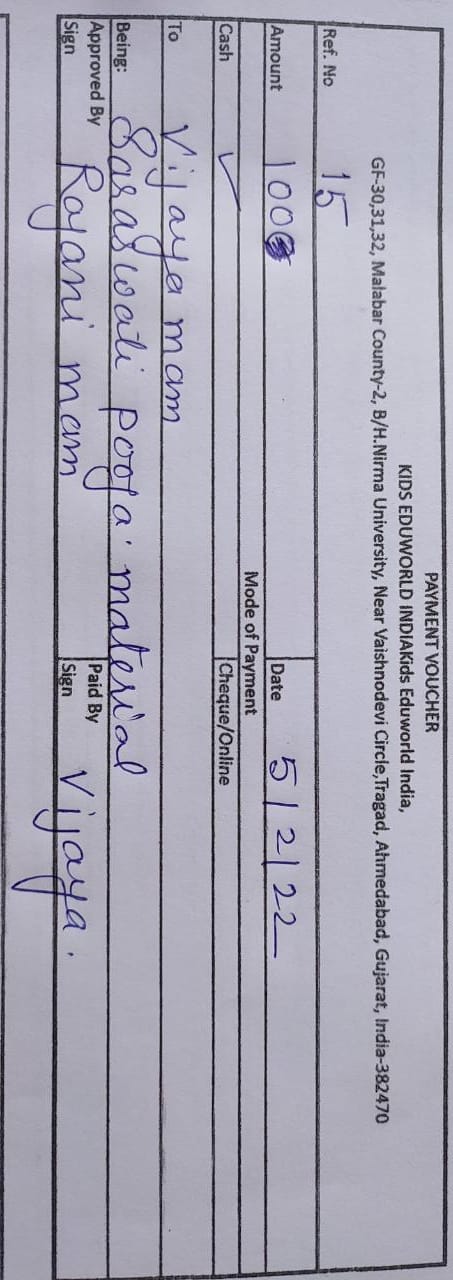 PAYMENT VOUCHER
KIDS EDUWORLD INDIAKids Eduworld India,
GF-30,31,32, Malabar County-2, B/H.Nirma University, Near Vaishnodevi Circle,Tragad, Ahmedabad, Gujarat, India-382470
Ref. No 15
Amount Date 5/2/22
Mode of Payment
Cash ✓ Cheque/Online
To Vijaya mam
Being: Saraswati pooja material
Approved By Sign Rajani mam Paid By Sign Vijaya.